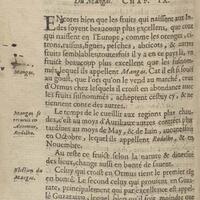 Du Mangas. CHAP. IX.
ENcores bien que les fruits qui naissent aux In-
des soyent beaucoup plus excellens, que ceux
qui naissent en l'Europe, comme les oranges, ci-
trons, raisins, figues, pesches, abricots, & autres
fruits semblables: toutesfois il y a en ce païs là, un
fruit beaucoup plus excellent que les susnom-
mez, lequel ils appellent Mangas. Car il est si bon
au goust, que l'on
d'Ormus chez lesquels il croist en abondance avec
les fruits susnommez, achetent cestuy cy, &
tiennent conte des autres.
Le temps de le cueillir aux regions plus chau-
des, c'est au moys d'Avril: aux autres contrées plus
tardives au moys de May, & de Iuin, aucunesfois
en Octobre, lequel ils appellent Rodolho, & en
Novembre.
Au reste ce fruict selon la nature & diversité
des lieux, change aussi en bonté de saveur.
Celuy qui croist en Ormus tient le premier rãg
en bonté. Le second celuy qui provient en Guza-
rate, principalement
lé Guzarates,
Mangas.
Mangas se
en
Rodolho.
Election du
Mangas.